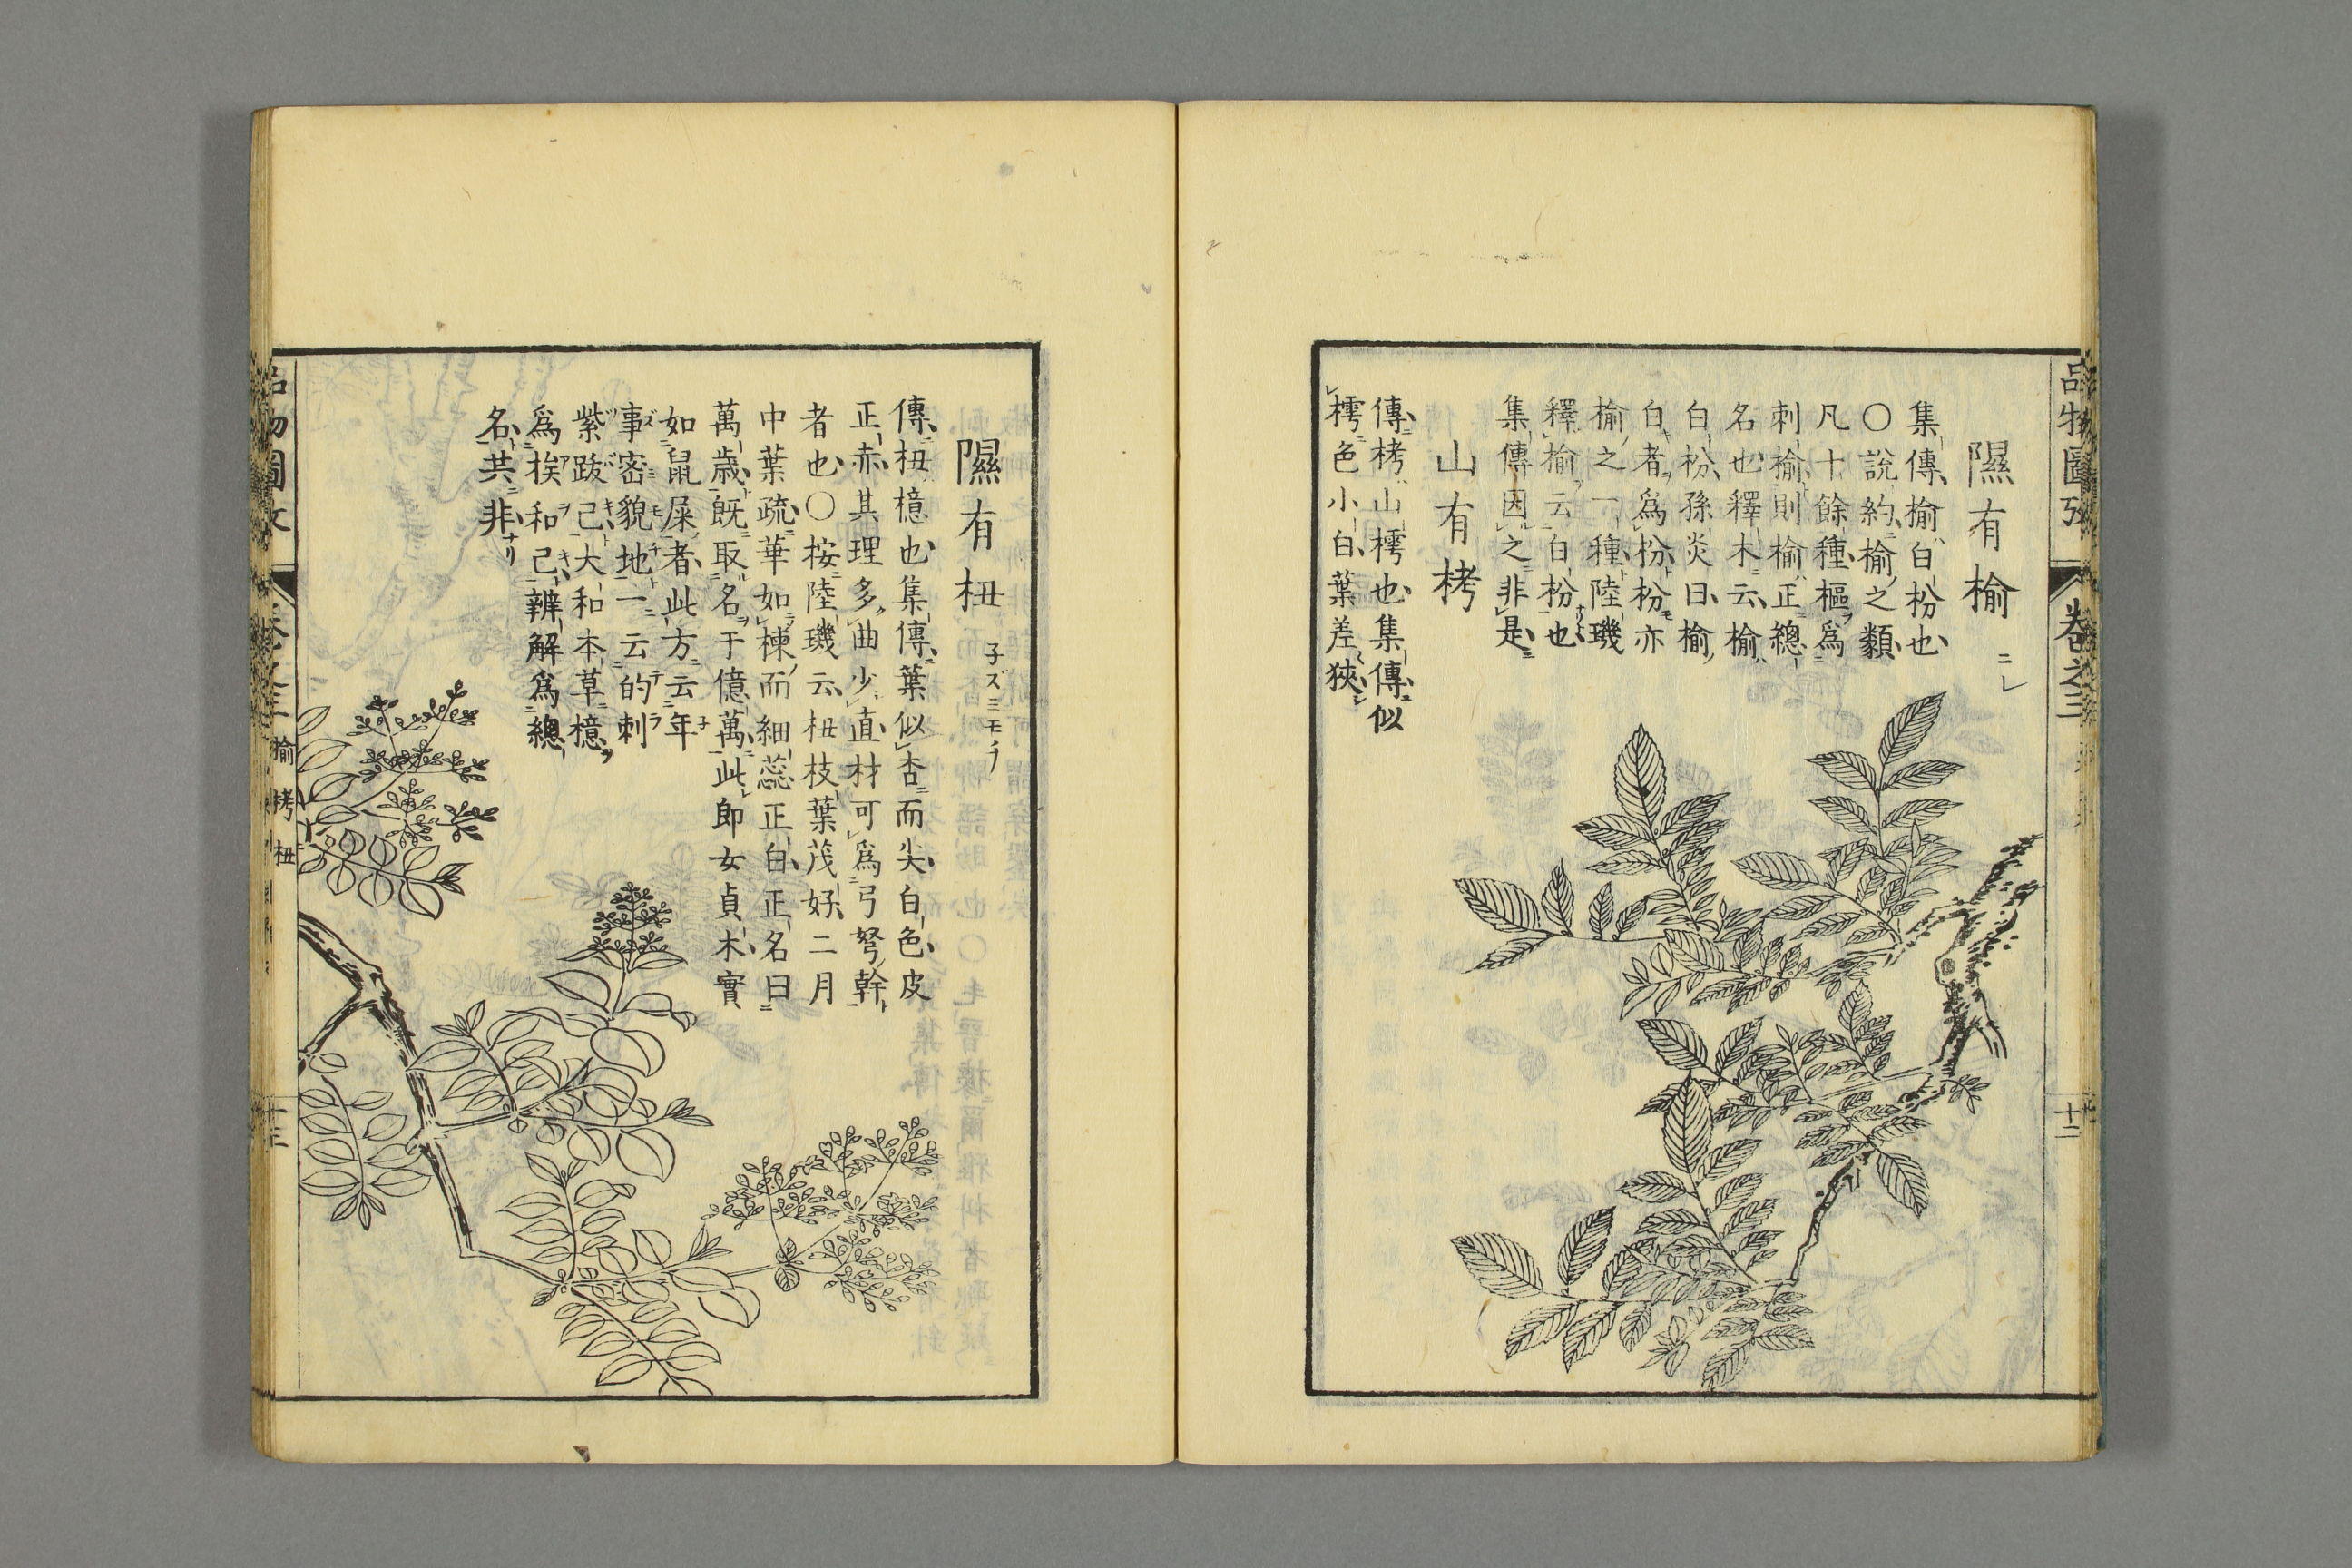 品物圖攷
卷之三
十二
隰有榆 ニレ
集傳榆白枌也
〇說約榆之類
凡十餘種樞爲
刺榆則榆正總
名也釋木云榆
白枌孫炎曰榆
白者爲枌枌亦
榆之一種陸璣
釋榆云白枌也
集傳因之非是
山有栲
傳栲山樗也集傳似
樗色小白葉差狹
隰有杻 子ズミモチ
傳杻檍也集傳葉似杏而尖白色皮
正赤其理多曲少直材可爲弓弩幹
者也〇按陸璣云杻枝葉茂好二月
中葉疏華如楝而細蕊正白正名曰
萬歲旣取名于億萬此即女貞木實
如鼠屎者此方云年
事密貌地一云的刺
紫跋己大和本草檍
爲挨和己辨解爲總
名共非
榆 栲 杻